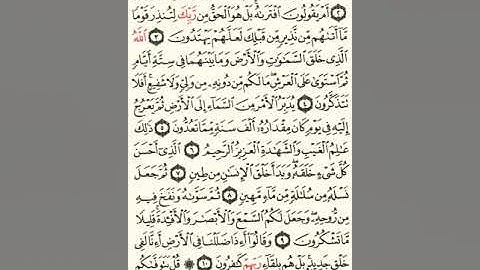 ٢ أَمْ يَقُولُونَ افْتَرَىٰهُ بَلْ هُوَ الْحَقُّ مِن رَّبِّكَ لِتُنذِرَ قَوْمًا
مَّا أَتَىٰهُم مِّن نَّذِيرٍ مِّن قَبْلِكَ لَعَلَّهُمْ يَهْتَدُونَ ٣ اللَّهُ
الَّذِي خَلَقَ السَّمَٰوَٰتِ وَالْأَرْضَ وَمَا بَيْنَهُمَا فِي سِتَّةِ أَيَّامٍ
ثُمَّ اسْتَوَىٰ عَلَى الْعَرْشِ مَا لَكُم مِّن دُونِهِ مِن وَلِيٍّ وَلَا شَفِيعٍ أَفَلَا
تَتَذَكَّرُونَ ٤ يُدَبِّرُ الْأَمْرَ مِنَ السَّمَاءِ إِلَى الْأَرْضِ ثُمَّ يَعْرُجُ
إِلَيْهِ فِي يَوْمٍ كَانَ مِقْدَارُهُ أَلْفَ سَنَةٍ مِّمَّا تَعُدُّونَ ٥ ذَٰلِكَ
عَٰلِمُ الْغَيْبِ وَالشَّهَٰدَةِ الْعَزِيزُ الرَّحِيمُ ٦ الَّذِي أَحْسَنَ
كُلَّ شَيْءٍ خَلَقَهُ وَبَدَأَ خَلْقَ الْإِنسَٰنِ مِن طِينٍ ٧ ثُمَّ جَعَلَ
نَسْلَهُ مِن سُلَٰلَةٍ مِّن مَّاءٍ مَّهِينٍ ٨ ثُمَّ سَوَّىٰهُ وَنَفَخَ فِيهِ
مِن رُّوحِهِ وَجَعَلَ لَكُمُ السَّمْعَ وَالْأَبْصَٰرَ وَالْأَفْـِٔدَةَ قَلِيلًا
مَّا تَشْكُرُونَ ٩ وَقَالُوا أَءِذَا ضَلَلْنَا فِي الْأَرْضِ أَءِنَّا لَفِي
خَلْقٍ جَدِيدٍ بَلْ هُم بِلِقَاءِ رَبِّهِمْ كَٰفِرُونَ ١٠ ۞ قُلْ يَتَوَفَّىٰكُم